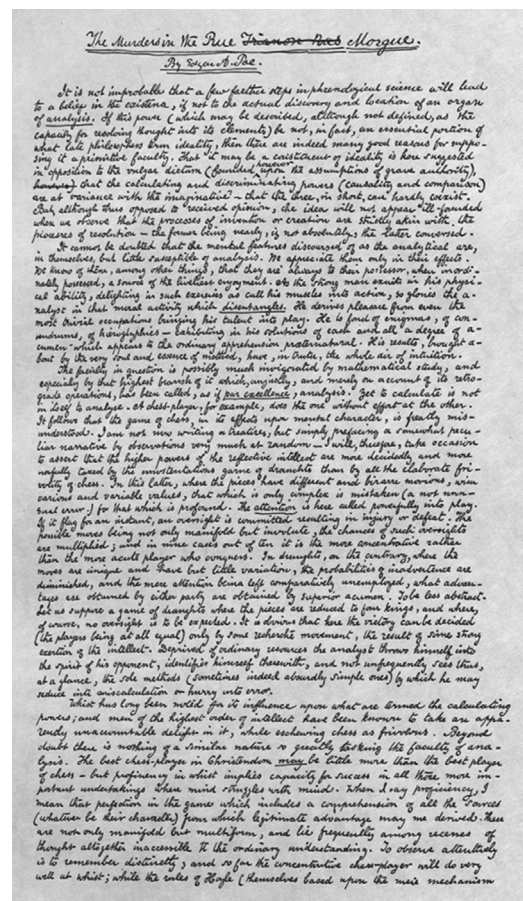 The Murders in the Rue Trianon Bas Morgue.
By Edgar A. Poe.
It is not improbable that a few farther steps in phrenological science will lead
to a belief in the existence, if not to the actual discovery and location of an organ
of analysis. If this power (which may be described, although not defined, as the
capacity for resolving thought into its elements) be not, in fact, an essential portion of
what late philosophers term ideality, then there are indeed many good reasons for suppo-
sing it a primitive faculty. That it may be a constituent of ideality is here suggested
in opposition to the vulgar dictum (founded, however, upon the assumptions of grave authority),
however, that the calculating and discriminating powers (causality and comparison)
are at variance with the imaginative — that the three, in short, can hardly coexist.
But, although thus opposed to received opinion, the idea will not appear ill-founded
when we observe that the processes of invention or creation are strictly akin with the
processes of resolution — the former being nearly, if not absolutely, the latter conversed.
It cannot be doubted that the mental features discoursed of as the analytical are,
in themselves, but little susceptible of analysis. We appreciate them only in their effects.
We know of them, among other things, that they are always to their possessor, when inordi-
nately possessed, a source of the liveliest enjoyment. As the strong man exults in his physi-
cal ability, delighting in such exercises as call his muscles into action, so glories the a-
nalyst in that moral activity which disentangles. He derives pleasure from even the
most trivial occupations bringing his talent into play. He is fond of enigmas, of con-
undrums, of hieroglyphics — exhibiting in his solutions of each and all a degree of a-
cumen which appears to the ordinary apprehension præternatural. His results, brought a-
bout by the very soul and essence of method, have, in truth, the whole air of intuition.
The faculty in question is possibly much invigorated by mathematical study, and
especially by that highest branch of it which, unjustly, and merely on account of its retro-
grade operations, has been called, as if par excellence, analysis. Yet to calculate is not
in itself to analyse. A chess-player, for example, does the one without effort at the other.
It follows that the game of chess, in its effects upon mental character, is greatly mis-
understood. I am not now writing a treatise, but simply prefacing a somewhat pecu-
liar narrative by observations very much at random — I will, therefore, take occasion
to assert that the higher powers of the reflective intellect are more decidedly and more
usefully tasked by the unostentatious game of draughts than by all the elaborate fri-
volity of chess. In this latter, where the pieces have different and bizarre motions, with
various and variable values, that which is only complex is mistaken (a not unu-
sual error) for that which is profound. The attention is here called powerfully into play.
If it flag for an instant, an oversight is committed resulting in injury or defeat. The
possible moves being not only manifold but involute, the chances of such oversights
are multiplied; and in nine cases out of ten it is the more concentrative rather
than the more acute player who conquers. In draughts, on the contrary, where the
moves are unique and have but little variation, the probabilities of inadvertence are
diminished, and the mere attention being left comparatively unemployed, what advan-
tages are obtained by either party are obtained by superior acumen. To be less abstract.
Let us suppose a game of draughts where the pieces are reduced to four kings, and where,
of course, no oversight is to be expected. It is obvious that here the victory can be decided
(the players being at all equal) only by some recherché movement, the result of some strong
exertion of the intellect. Deprived of ordinary resources the analyst throws himself into
the spirit of his opponent, identifies himself therewith, and not unfrequently sees thus,
at a glance, the sole methods (sometimes indeed absurdly simple ones) by which he may
seduce into miscalculation or hurry into error.
Whist has long been noted for its influence upon what are termed the calculating
powers; and men of the highest order of intellect have been known to take an appa-
rently unaccountable delight in it, while eschewing chess as frivolous. Beyond
doubt there is nothing of a similar nature so greatly tasking the faculty of ana-
lysis. The best chess-player in Christendom may be little more than the best player
of chess — but proficiency in whist implies capacity for success in all those more im-
portant undertakings where mind struggles with mind. When I say proficiency, I
mean that perfection in the game which includes a comprehension of all the sources
(whatever be their character) from which legitimate advantage may be derived. These
are not only manifold but multiform, and lie frequently among recesses of
thought altogether inaccessible to the ordinary understanding. To observe attentively
is to remember distinctly; and so far the concentrative chess-player will do very
well at whist; while the rules of Hoyle (themselves based upon the mere mechanism